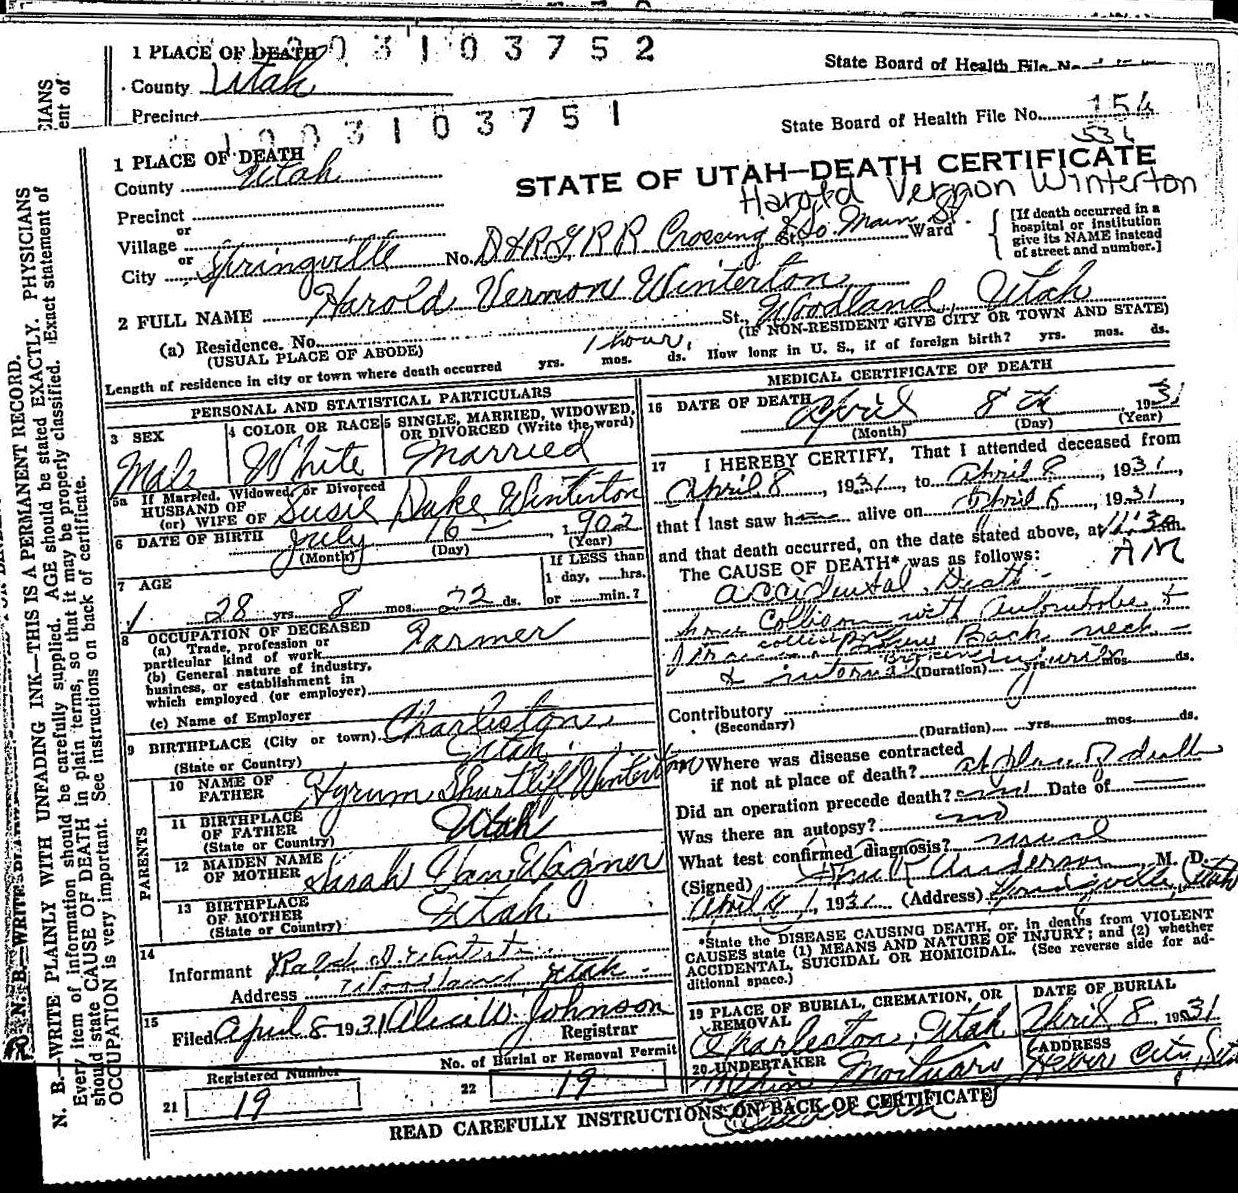 1 PLACE OF DEATH
1003103752
State Board of Health File No.
County Utah
Precinct
1003103751
State Board of Health File No. 154
536
1 PLACE OF DEATH
County Utah
STATE OF UTAH—DEATH CERTIFICATE
Harold Vernon Winterton
Precinct
or
Village
or
City Springville No. D&RG RR Crossing & So. Main St. St., Ward
{ [If death occurred in a
hospital or institution
give its NAME instead
of street and number.]
2 FULL NAME Harold Vernon Winterton
(a) Residence. No. St., Woodland, Utah
(USUAL PLACE OF ABODE) (IF NON-RESIDENT GIVE CITY OR TOWN AND STATE)
Length of residence in city or town where death occurred yrs. mos. ds. 1 hour. How long in U. S., if of foreign birth? yrs. mos. ds.
PERSONAL AND STATISTICAL PARTICULARS
3 SEX
Male
4 COLOR OR RACE
White
5 SINGLE, MARRIED, WIDOWED,
OR DIVORCED (Write the word)
Married
5a If Married, Widowed, or Divorced
HUSBAND OF
(or) WIFE OF Susie Duke Winterton
6 DATE OF BIRTH July 16, 1902
(Month) (Day) (Year)
7 AGE
28 yrs. 8 mos. 22 ds.
If LESS than
1 day, hrs.
or min.?
8 OCCUPATION OF DECEASED
(a) Trade, profession or
particular kind of work Farmer
(b) General nature of industry,
business, or establishment in
which employed (or employer)
(c) Name of Employer
9 BIRTHPLACE (City or town) Charleston,
(State or Country) Utah
PARENTS
10 NAME OF
FATHER Hyrum Shurtliff Winterton
11 BIRTHPLACE
OF FATHER
(State or Country) Utah
12 MAIDEN NAME
OF MOTHER Sarah Van Wagner
13 BIRTHPLACE
OF MOTHER
(State or Country) Utah
14
Informant Ralph
Address Woodland Utah
15
Filed April 8 1931 Alice W. Johnson
Registrar
Registered Number
21 19
No. of Burial or Removal Permit
22 19
MEDICAL CERTIFICATE OF DEATH
16 DATE OF DEATH April 8th, 1931
(Month) (Day) (Year)
17 I HEREBY CERTIFY, That I attended deceased from
April 8, 1931, to April 8, 1931,
that I last saw h alive on April 8, 1931,
and that death occurred, on the date stated above, at 11:30 m.
AM
The CAUSE OF DEATH* was as follows:
Accidental Death
Collision with Automobile &
Back neck
& internal injuries
(Duration) yrs. mos. ds.
Contributory
(Secondary)
(Duration) yrs. mos. ds.
Where was disease contracted
if not at place of death? at place of death
Did an operation precede death? no Date of
Was there an autopsy? no
What test confirmed diagnosis? usual
(Signed) Anderson, M. D.
April 8, 1931 (Address) Springville, Utah
*State the DISEASE CAUSING DEATH, or, in deaths from VIOLENT
CAUSES state (1) MEANS AND NATURE OF INJURY; and (2) whether
ACCIDENTAL, SUICIDAL OR HOMICIDAL. (See reverse side for ad-
ditional space.)
19 PLACE OF BURIAL, CREMATION, OR
REMOVAL
Charleston, Utah
DATE OF BURIAL
April 8, 1931
20 UNDERTAKER
Mortuary
ADDRESS
Heber City, Utah
READ CAREFULLY INSTRUCTIONS ON BACK OF CERTIFICATE
N. B.—WRITE PLAINLY WITH UNFADING INK—THIS IS A PERMANENT RECORD.
Every item of information should be carefully supplied. AGE should be stated EXACTLY. PHYSICIANS
should state CAUSE OF DEATH in plain terms, so that it may be properly classified. Exact statement of
OCCUPATION is very important. See instructions on back of certificate.